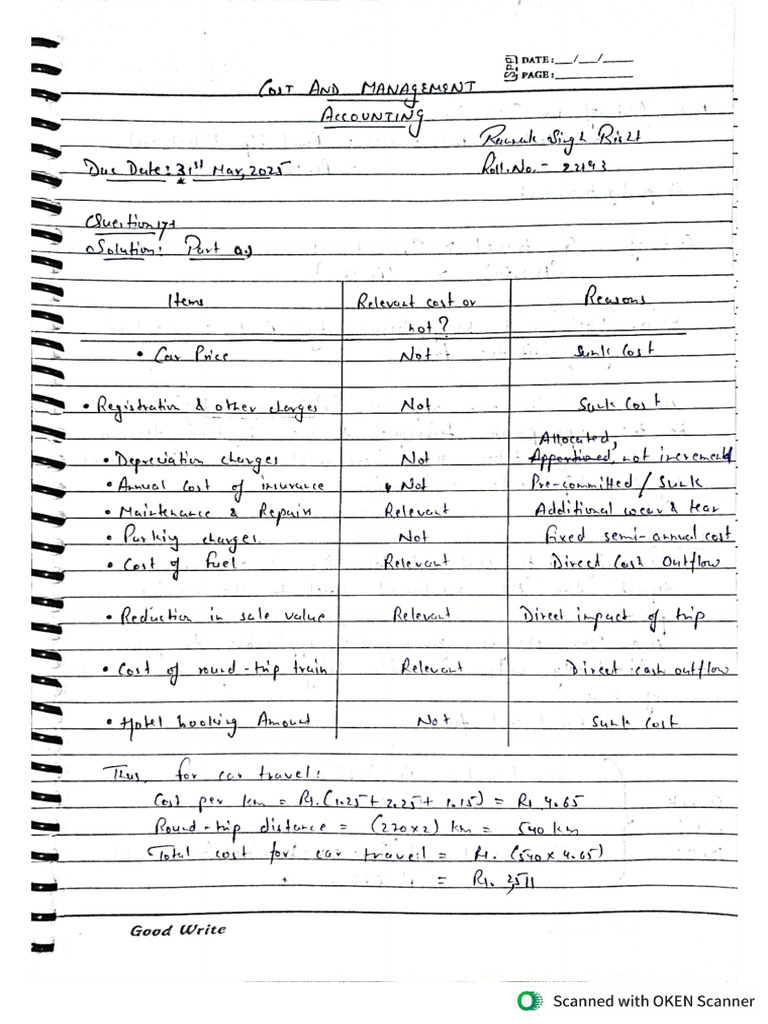 DATE:__/__/____
PAGE:__________
COST AND MANAGEMENT
ACCOUNTING
Raunak Singh Bisht
Due Date: 31st Mar, 2025
Roll.No.- 22193
Question 17
Solution: Part a.)
Items Relevant cost or not? Reasons
• Car Price Not Sunk Cost
• Registration & other charges Not Sunk Cost
• Depreciation charges Not Allocated, not incremental
• Annual Cost of insurance Not Pre-committed / Sunk
• Maintenance & Repairs Relevant Additional wear & tear
• Parking charges Not Fixed semi-annual cost
• Cost of fuel Relevant Direct Cash Outflow
• Reduction in sale value Relevant Direct impact of trip
• Cost of round-trip train Relevant Direct cash outflow
• Hotel booking Amount Not Sunk Cost
Thus, for car travel:
Cost per km = Rs. (1.25 + 2.25 + 1.15) = Rs 4.65
Round-trip distance = (270×2) km = 540 km
Total cost for car travel = Rs. (540 × 4.65)
= Rs. 2,511
Good Write
Scanned with OKEN Scanner